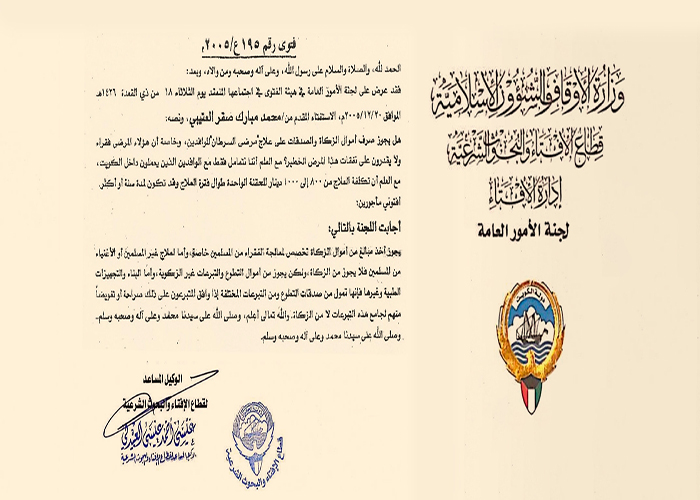 فتوى رقم ١٩٥ ع/٢٠٠٥م
الحمد لله، والصلاة والسلام على رسول الله، وعلى آله وصحبه ومن والاه، وبعد:
فقد عرض على لجنة الأمور العامة في هيئة الفتوى في اجتماعها المنعقد يوم الثلاثاء ١٨ من ذي القعدة ١٤٢٦هـ
الموافق ٢٠٠٥/١٢/٢٠م، الاستفتاء المقدم من/محمد مبارك صقر العتيبي، ونصه:
هل يجوز صرف أموال الزكاة والصدقات على علاج مرضى السرطان للوافدين، وخاصة أن هؤلاء المرضى فقراء
ولا يقدرون على نفقات هذا المرض الخطير؟ مع العلم أننا نتعامل فقط مع الوافدين الذين يعملون داخل الكويت،
مع العلم أن تكلفة العلاج من ٨٠٠ إلى ١٠٠٠ دينار للحقنة الواحدة طوال فترة العلاج وقد تكون لمدة سنة أو أكثر.
أفتوني مأجورين؟
أجابت اللجنة بالتالي:
يجوز أخذ مبالغ من أموال الزكاة تخصص لمعالجة الفقراء من المسلمين خاصة، وأما لعلاج غير المسلمين أو الأغنياء
من المسلمين فلا يجوز من الزكاة، ولكن يجوز من أموال التطوع والتبرعات غير الزكوية، وأما البناء والتجهيزات
الطبية وغيرها فإنها تمول من صدقات التطوع ومن التبرعات المختلفة إذا وافق المتبرعون على ذلك صراحة أو تفويضاً
منهم لجامع هذه التبرعات لا من الزكاة. والله تعالى أعلم، وصلى الله على سيدنا محمد وعلى آله وصحبه وسلم.
وصلى الله على سيدنا محمد وعلى آله وصحبه وسلم.
الوكيل المساعد
لقطاع الإفتاء والبحوث الشرعية
قطاع الإفتاء والبحوث الشرعية
وزارة الأوقاف والشؤون الإسلامية
قطاع الإفتاء والبحوث الشرعية
إدارة الإفتاء
لجنة الأمور العامة
دولة الكويت